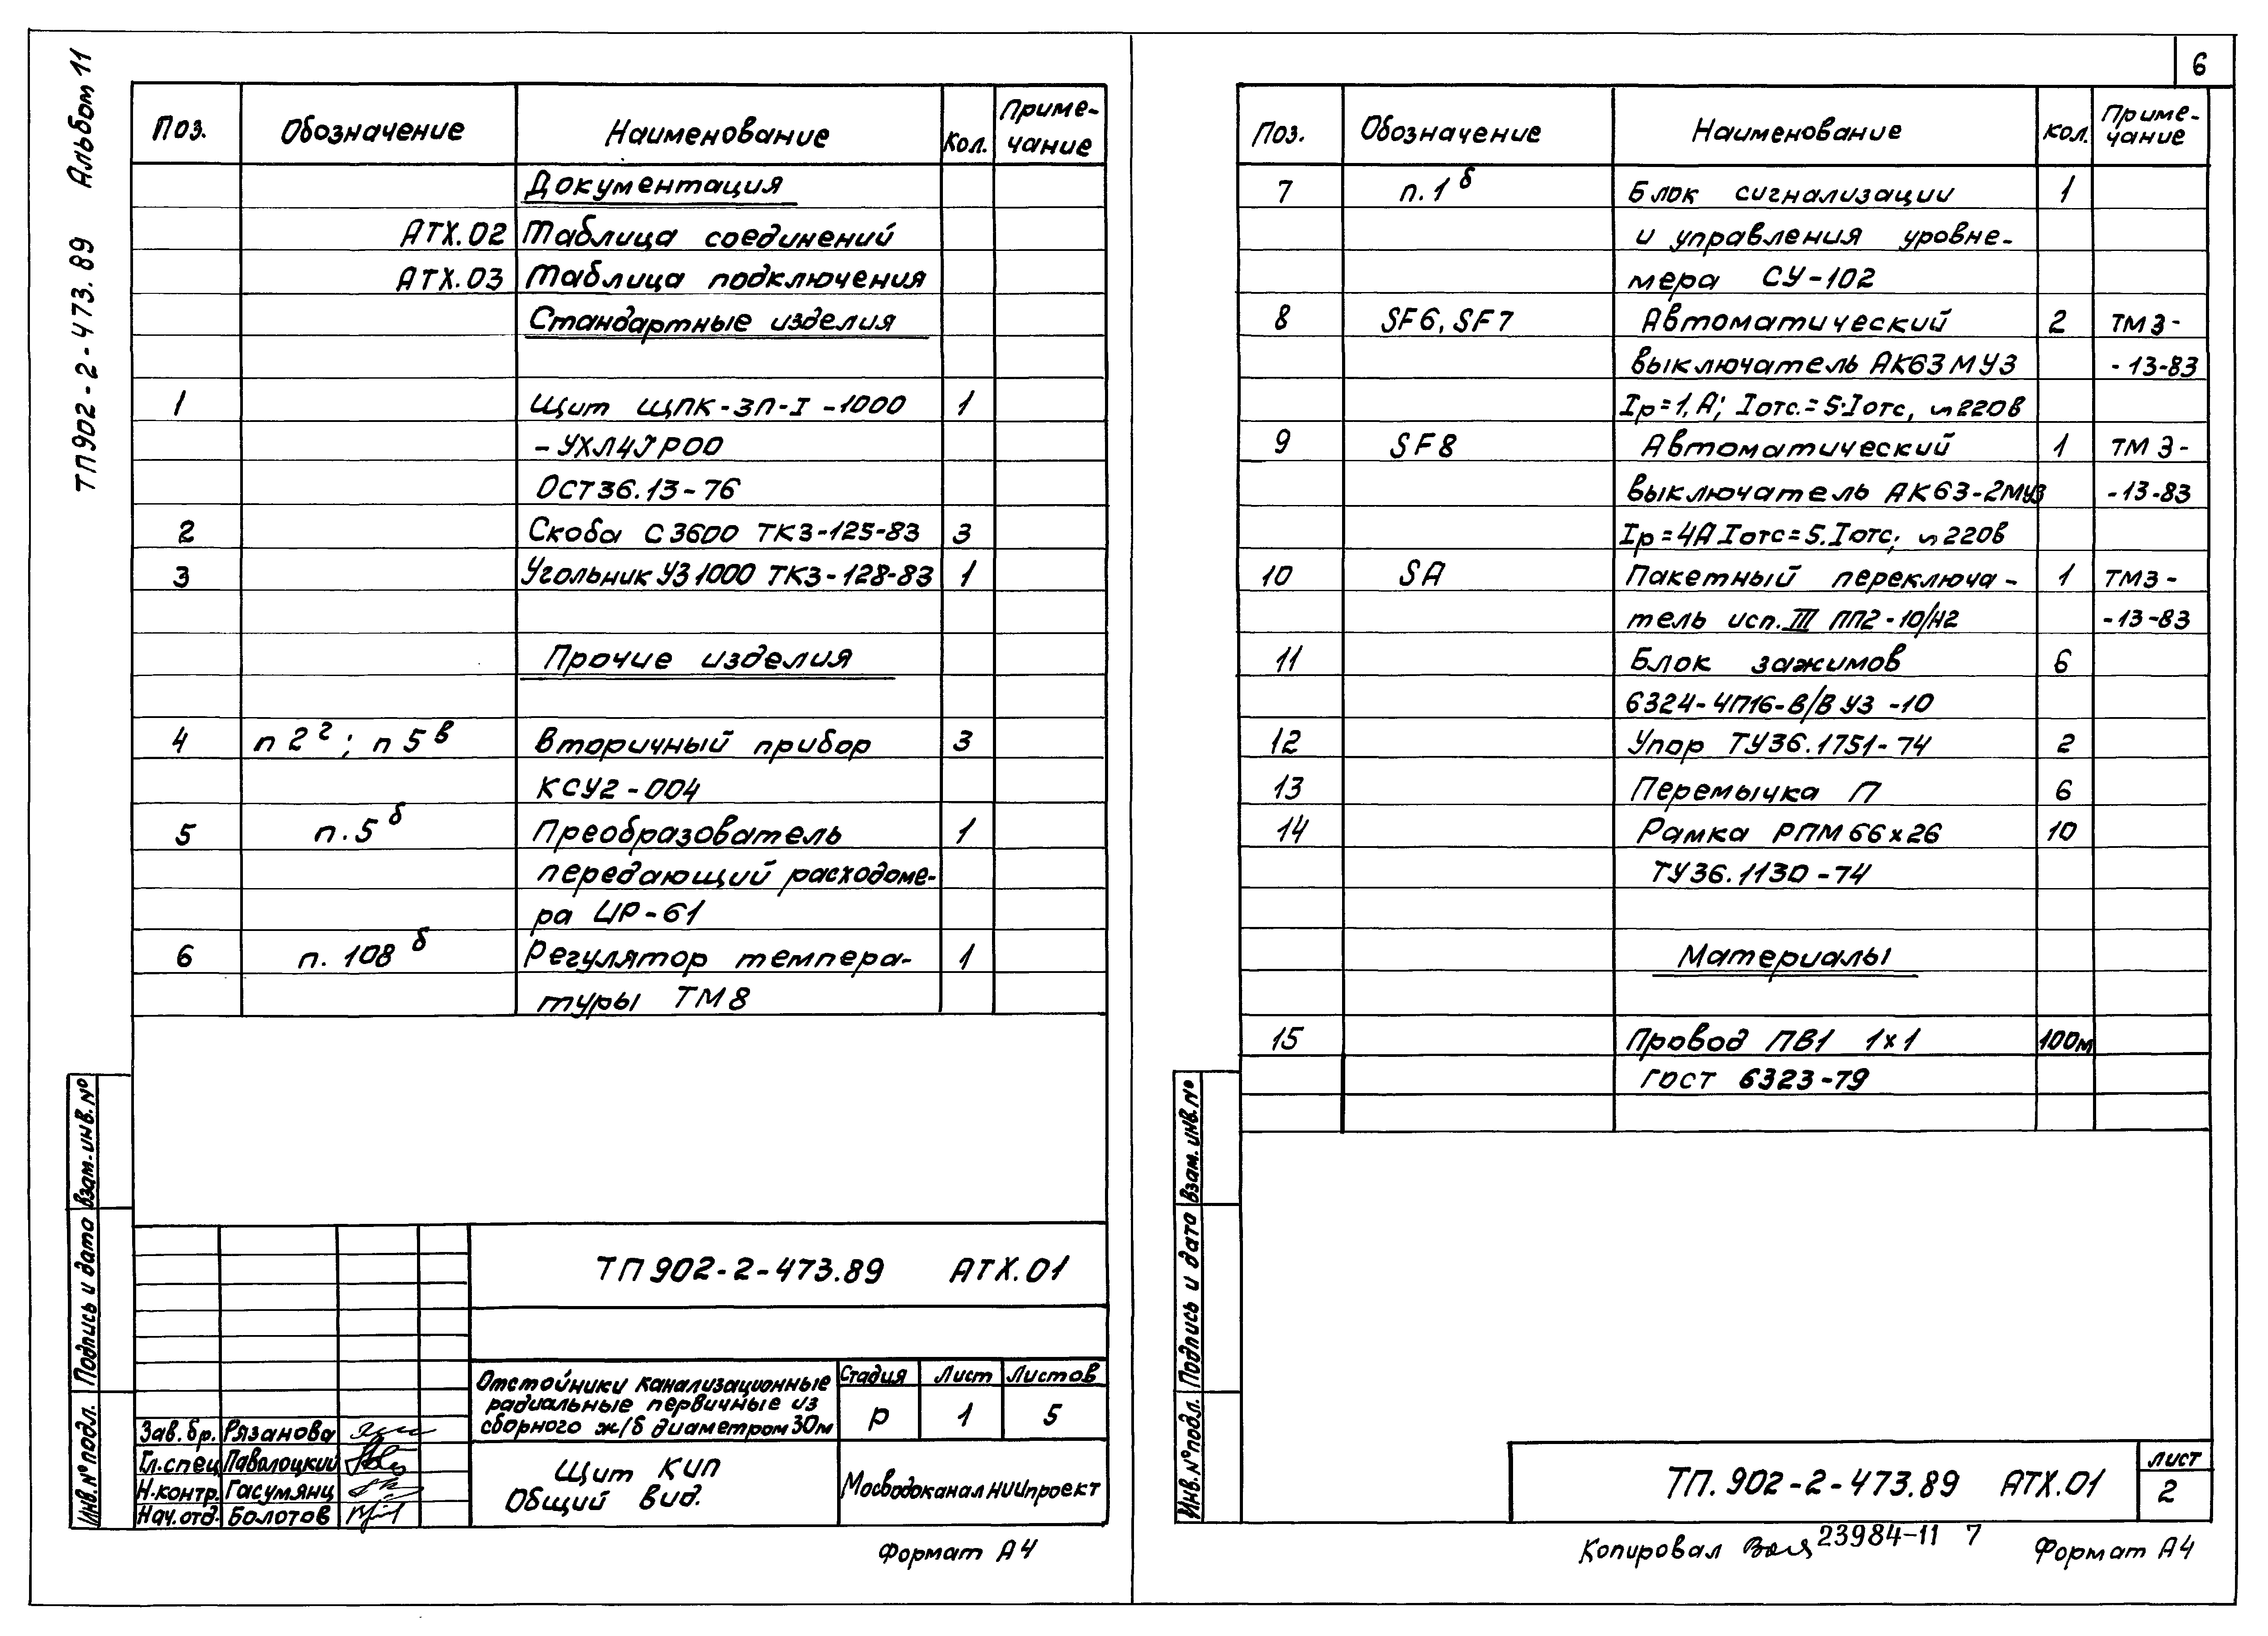 ТП902-2-473.89 Альбом 11
Поз. Обозначение Наименование Кол. Приме-
чание
Документация
АТХ.02 Таблица соединений
АТХ.03 Таблица подключения
Стандартные изделия
1 Щит ЩПК-ЗП-I-1000 1
-УХЛ4 IР00
ОСТ36.13-76
2 Скоба С3600 ТКЗ-125-83 3
3 Угольник УЗ1000 ТКЗ-128-83 1
Прочие изделия
4 п 2г; п 5в Вторичный прибор 3
КСУ2-004
5 п.5б Преобразователь 1
передающий расходоме-
ра ИР-61
6 п.108б Регулятор темпера- 1
туры ТМ8
Взам.инв.№
Подпись и дата
Инв.№ подл.
ТП902-2-473.89 АТХ.01
Отстойники канализационные
радиальные первичные из
сборного ж/б диаметром 30м
Стадия Лист Листов
Р 1 5
Зав.бр. Рязанова
Гл.спец Паволоцкий
Н.контр. Гасумянц
Нач.отд. Болотов
Щит КИП
Общий вид.
МосводоканалНИИпроект
Формат А4
6
Поз. Обозначение Наименование кол. Приме-
чание
7 п.1б Блок сигнализации 1
и управления уровне-
мера СУ-102
8 SF6, SF7 Автоматический 2 ТМЗ-
выключатель АК63МУЗ -13-83
Iр=1,А; Iотс.=5·Iотс, ~220в
9 SF8 Автоматический 1 ТМЗ-
выключатель АК63-2МУЗ -13-83
Iр=4А Iотс=5.Iотс; ~220в
10 SA Пакетный переключа- 1 ТМЗ-
тель исп.III ПП2-10/Н2 -13-83
11 Блок зажимов 6
6324-4П16-В/В УЗ-10
12 Упор ТУ36.1751-74 2
13 Перемычка П 6
14 Рамка РПМ 66х26 10
ТУ36.1130-74
Материалы
15 Провод ПВ1 1х1 100м
ГОСТ 6323-79
Взам.инв.№
Подпись и дата
Инв.№ подл.
ТП.902-2-473.89 АТХ.01
лист
2
Копировал 23984-11 7 Формат А4